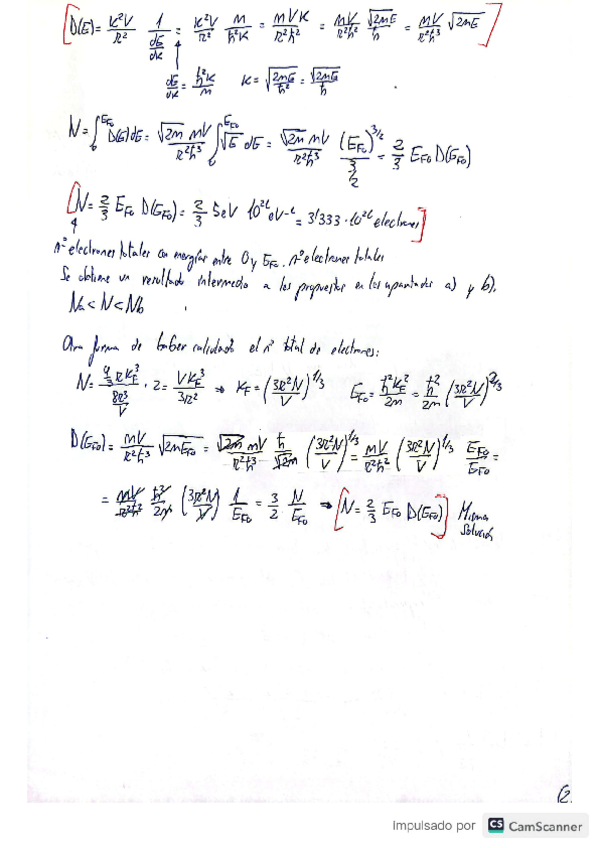 [D(E) = K²V/π² 1/(dE/dK) = K²V/π² m/ħ²K = mVK/π²ħ² = mV/π²ħ² √2mE/ħ = mV/π²ħ³ √2mE]
dE/dK = ħ²K/m K = √(2mE/ħ²) = √2mE/ħ
N = ∫₀^EF₀ D(E)dE = √2m mV/π²ħ³ ∫₀^EF₀ √E dE = √2m mV/π²ħ³ (EF₀)^3/2 / (3/2) = 2/3 EF₀ D(EF₀)
[N = 2/3 EF₀ D(EF₀) = 2/3 5eV 10²⁶ eV⁻¹ = 3'333·10²⁶ electrones]
nº electrones totales con energías entre 0 y EF₀. nº electrones totales
Se obtiene un resultado intermedio a los propuestos en los apartados a) y b).
Na < N < Nb
Otra forma de haber calculado el nº total de electrones:
N = (4/3 π KF³)/(8π³/V) · 2 = VKF³/3π² ⇒ KF = (3π²N/V)^1/3 EF₀ = ħ²KF²/2m = ħ²/2m (3π²N/V)^2/3
D(EF₀) = mV/π²ħ³ √2mEF₀ = √2m mV/π²ħ³ ħ/√2m (3π²N/V)^1/3 = mV/π²ħ² (3π²N/V)^1/3 EF₀/EF₀ =
= mV/π²ħ² ħ²/2m (3π²N/V) 1/EF₀ = 3/2 N/EF₀ ⇒ [N = 2/3 EF₀ D(EF₀)] Misma
solución
12.
Impulsado por CS CamScanner